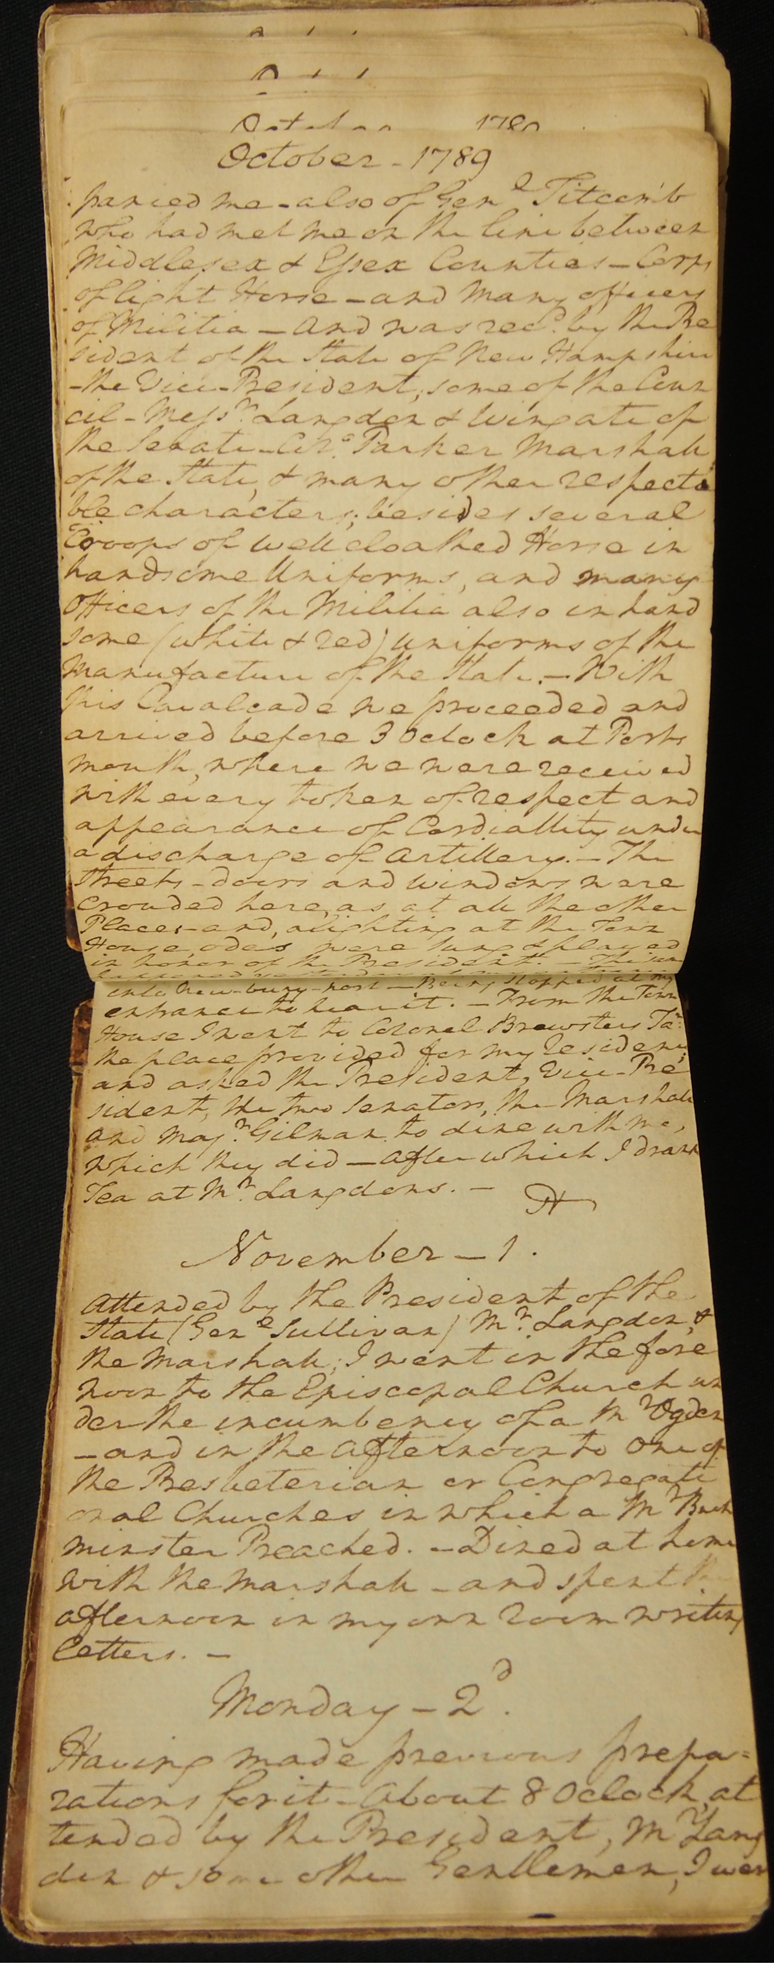 October 1789
October - 1789
panied me - also of Genl Titcomb
who had met me on the line between
Middlesex & Essex Counties - Corps
of light Horse - and Many officers
of Militia - And was recd. by the Pre
sident of the State of New Hampshire
- the Vice-President; some of the Coun
cil - Messrs. Langdon & Wingate of
the Senate - Colo. Parker Marshall
of the State, & many other respecta
ble characters; besides several
Troops of well cloathed Horse in
handsome Uniforms, and many
Officers of the Militia also in hand
some (white & red) uniforms of the
Manufacture of the State. - With
this Cavalcade we proceeded and
arrived before 3 Oclock at Ports
mouth, where we were received
with every token of respect and
appearance of Cordiallity under
a discharge of Artillery. - The
Streets - doors and windows were
Crouded here, as at all the other
Places - and, alighting at the Town
House, odes were sung & played
in honor of the President. - The same
into New-bury-port - Being stopped at my
entrance to hear it. - From the Town
House I went to Colonel Brewsters Ta
the place provided for my residence
and asked the President, Vice-Pre
sident, the two Senators, the Marshall
and Majr. Gilman to dine with me,
which they did - after which I drank
Tea at Mr. Langdons. -
November - 1.
Attended by the President of the
State (Genl Sullivan) Mr. Langdon, &
the Marshall; I went in the fore
noon to the Episcopal Church un
der the incumbency of a Mr Ogden
- and in the afternoon to one of
the Presbeterian or Congregati
onal Churches in which a Mr Buck
minster Preached. - Dined at home
with the Marshall - and spent the
afternoon in my own room writing
letters. -
Monday - 2d.
Having made previous prepa=
rations for it - About 8 Oclock, at
tended by the President, Mr Lang
don & some other Gentlemen, I went